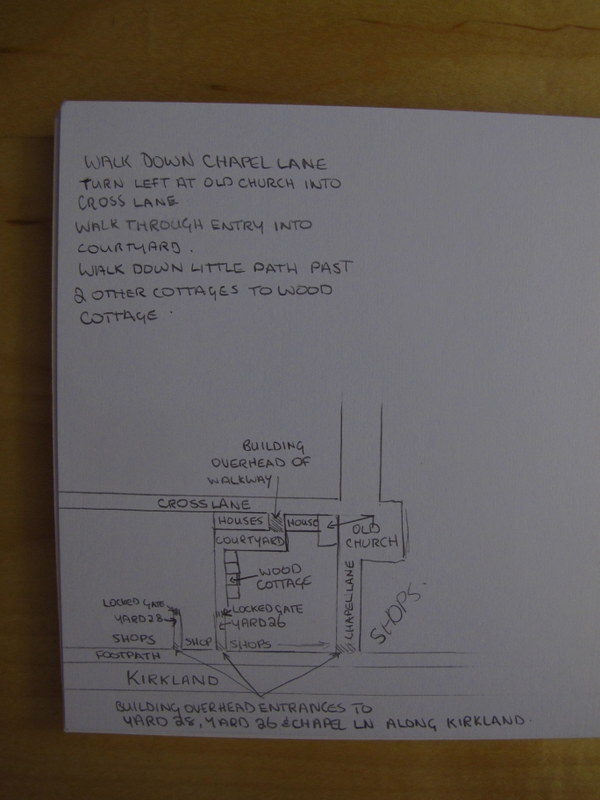 WALK DOWN CHAPEL LANE
TURN LEFT AT OLD CHURCH INTO
CROSS LANE
WALK THROUGH ENTRY INTO
COURTYARD.
WALK DOWN LITTLE PATH PAST
2 OTHER COTTAGES TO WOOD
COTTAGE.
BUILDING
OVERHEAD OF
WALKWAY
CROSS LANE
HOUSES
HOUSE
OLD
CHURCH
COURTYARD
WOOD
COTTAGE
CHAPEL LANE
SHOPS.
LOCKED GATE
YARD 28
LOCKED GATE
YARD 26
SHOPS
SHOP
SHOPS
FOOTPATH
KIRKLAND
BUILDING OVERHEAD ENTRANCES TO
YARD 28, YARD 26 & CHAPEL LN ALONG KIRKLAND.